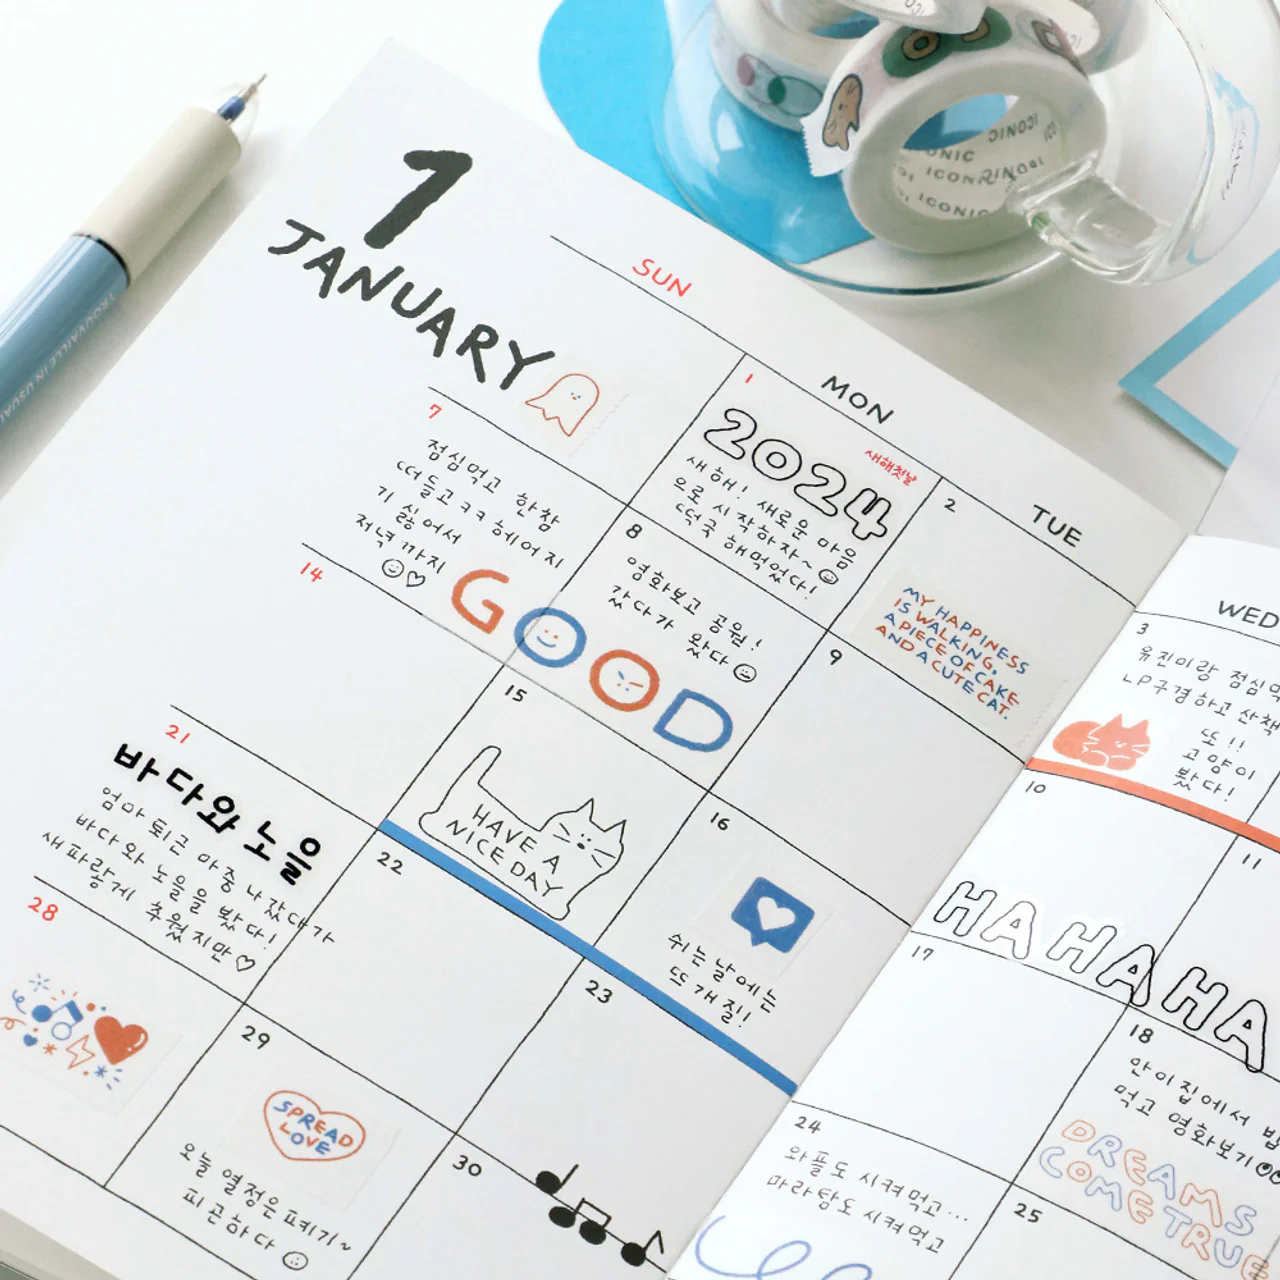 1
JANUARY
SUN
MON
TUE
WED
1
2024
새해첫날
새해! 새로운 마음
으로 시작하자~
떡국 해먹었다!
2
MY HAPPINESS
IS WALKING,
A PIECE OF CAKE
AND A CUTE CAT.
3
유진이랑 점심먹
LP구경하고 산책
또!!
고양이
봤다!
7
점심먹고 한참
떠들고 ㅋㅋ 헤어지
기 싫어서
저녁까지
8
영화보고 공원!
갔다가 왔다
GOOD
9
10
HA HA HA
11
14
15
HAVE A
NICE DAY
16
쉬는 날에는
뜨개질!
17
18
안이집에서 밥
먹고 영화보기
DREAMS
COME TRUE
21
바다와 노을
엄마 퇴근 마중 나갔다가
바다와 노을을 봤다!
새파랗게 추웠지만♡
22
23
24
와플도 시켜먹고...
마라탕도 시켜먹고
25
28
29
SPREAD
LOVE
오늘 열정은 폐기!~
피곤하다
30
TROUVAILLE IN USUAL
ICONIC
ICONIC
ICONIC